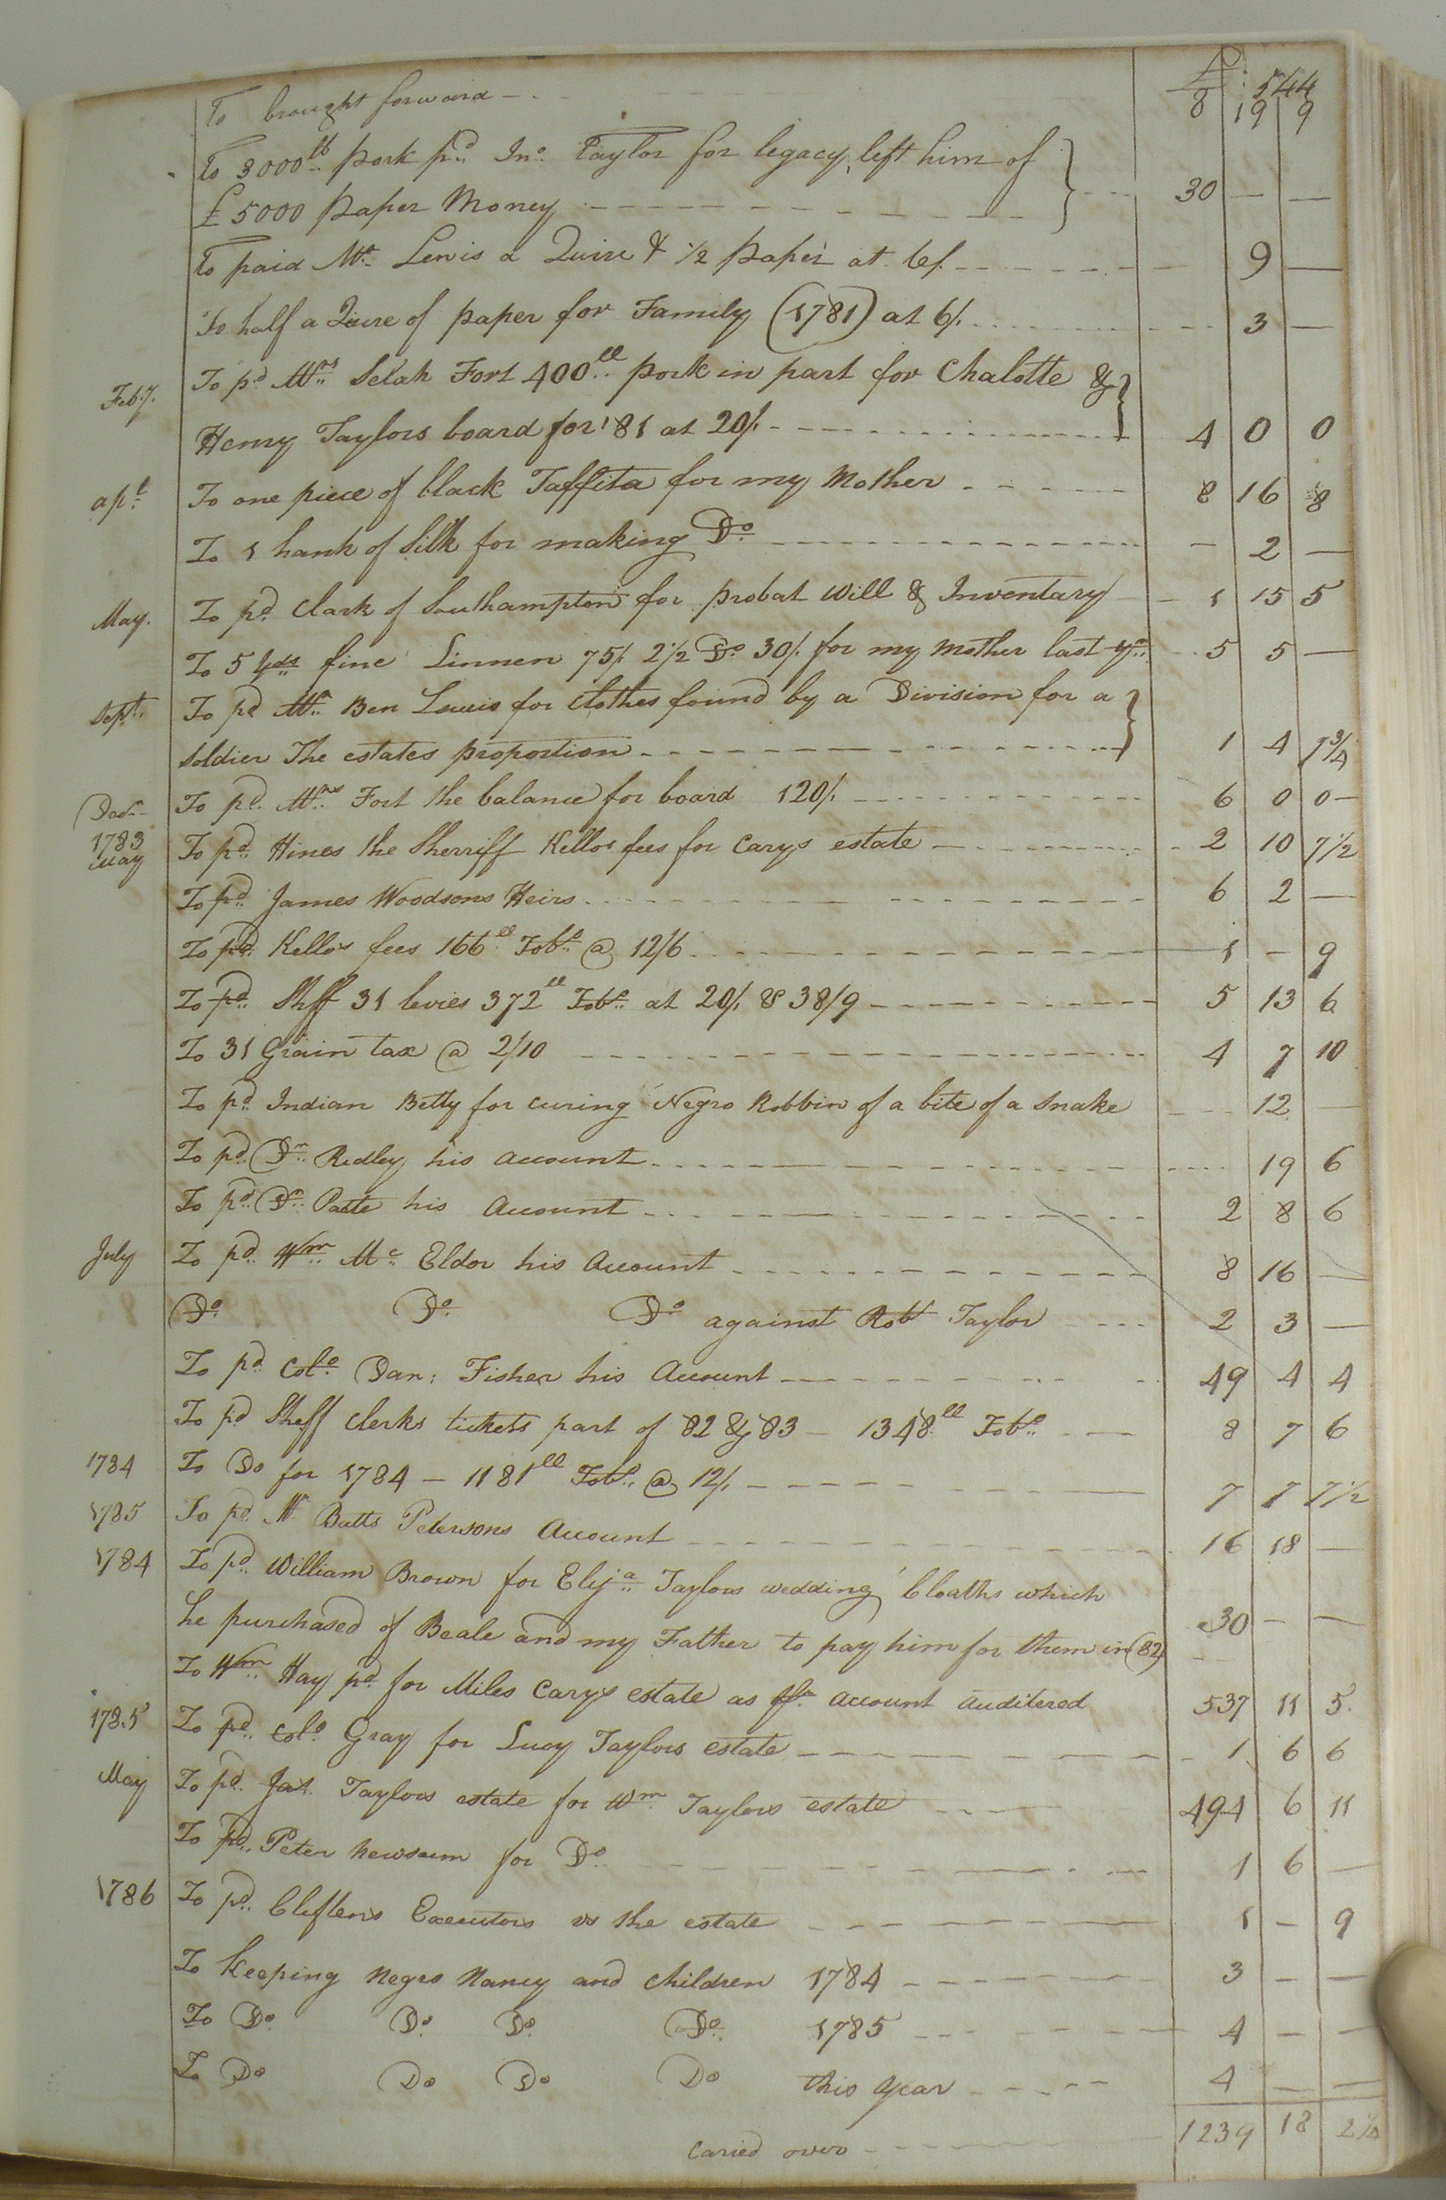 £ : 544
To brought forward - . 8 19 9
To 3000lb pork pd Jno. Taylor for legacy, left him of
£ 5000 paper Money - - - 30 — —
To paid Mr Lewis a Quire & 1/2 paper at 6/. - - - 9 —
To half a Quire of paper for Family (1781) at 6/. - - - 3 —
Feby. To pd Mrs Selah Fort 400ll pork in part for Chalotte &
Henry Taylors board for '81 at 20/. - - - 4 0 0
apl. To one piece of black Taffita for my Mother - - - 8 16 8
To 1 hank of Silk for making Do - - - — 2 —
May. To pd Clark of Southampton for probat Will & Inventary - 1 15 5
To 5 Yds fine Linnen 75/. 2 1/2 Do 30/. for my Mother last yr. - - 5 5 —
Sept. To pd Mr Ben Lewis for Clothes found by a Division for a
Soldier The estates proportion - - - 1 4 1 3/4
To pd. Mrs Fort the balance for board 120/. - - - 6 0 0 —
1783
May To pd Hines the Sherriff Kellos fees for Carys estate - - - 2 10 7 1/2
To pd. James Woodsons Heirs - - - 6 2 —
To pd Kellos fees 166ll Tobo @ 12/6 - - - 1 - 9
To pd. Shff 31 levies 372ll Tobo. at 20/. & 38/9 - - - 5 13 6
To 31 Grain tax @ 2/10 - - - 4 7 10
To pd Indian Betty for curing Negro Robbin of a bite of a Snake - - - 12 —
To pd. Dr. Ridley his account - - - 19 6
To pd. Dr. Paste his Account - - - 2 8 6
July To pd. Wm. Mc. Eldor his Account - - - 8 16 —
Do. Do. Do against Robt Taylor - - - 2 3 —
To pd Colo. Dan: Fisher his Account - - - 49 4 4
To pd Sheff clerks tickets part of 82 & 83 - 1348ll Tobo. - - - 8 7 6
1784 To Do for 1784 - 1181ll Tobo. @ 12/. - - - 7 1 7 1/2
1785 To pd. Mr Batts Petersons Account - - - 16 18 —
1784 To pd. William Brown for Elija Taylors wedding Cloaths which
he purchased of Beale and my Father to pay him for them in (82) 30 — —
To Wm. Hay pd for Miles Carys estate as pr. Account Auditered 537 11 5.
1785 To pd. Colo Gray for Lucy Taylors estate - - - 1 6 6
May To pd. Jas. Taylors estate for Wm. Taylors estate - - - 494 6 11
To pd. Peter Newsum for Do - - - 1 6 —
1786 To pd. Cliftens Executors vs the estate - - - 1 - 9
To Keeping Negro Nancy and children 1784 - - - 3 - —
To Do. Do. Do. Do. 1785 - - - 4 - —
To Do Do Do Do this Year - - - 4 — —
Caried over - - - 1239 18 2 1/2